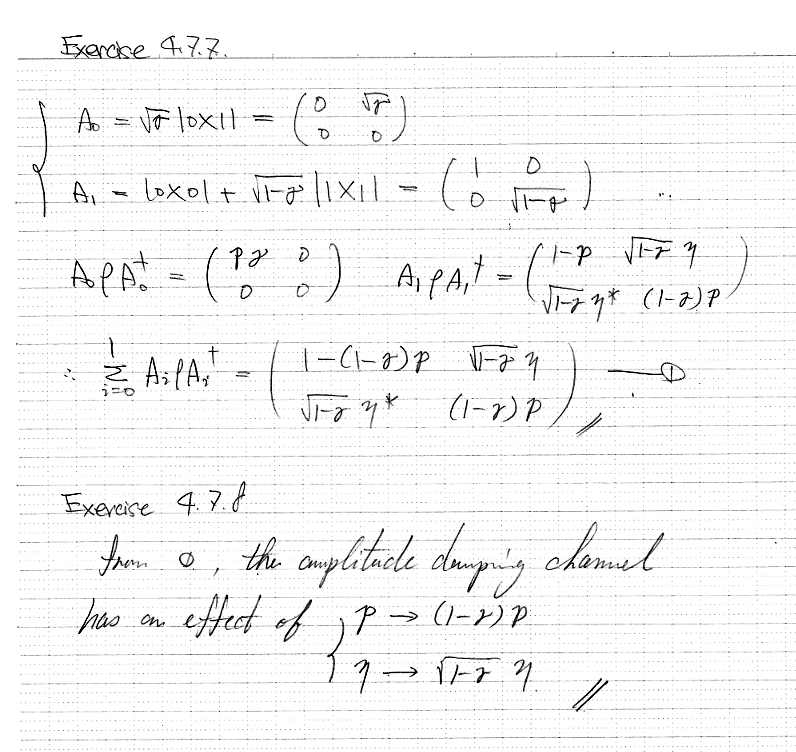 Exercise 4.7.7.
A₀ = √γ |0X1| = ( 0 √γ ; 0 0 )
A₁ = |0X0| + √1-γ |1X1| = ( 1 0 ; 0 √1-γ )
A₀ρA₀† = ( pγ 0 ; 0 0 ) A₁ρA₁† = ( 1-p √1-γ η ; √1-γ η* (1-γ)p )
∴ Σ_{i=0}^{1} AᵢρAᵢ† = ( 1-(1-γ)p √1-γ η ; √1-γ η* (1-γ)p ) —①
Exercise 4.7.8
from ①, the amplitude damping channel
has an effect of { p → (1-γ)p
η → √1-γ η.